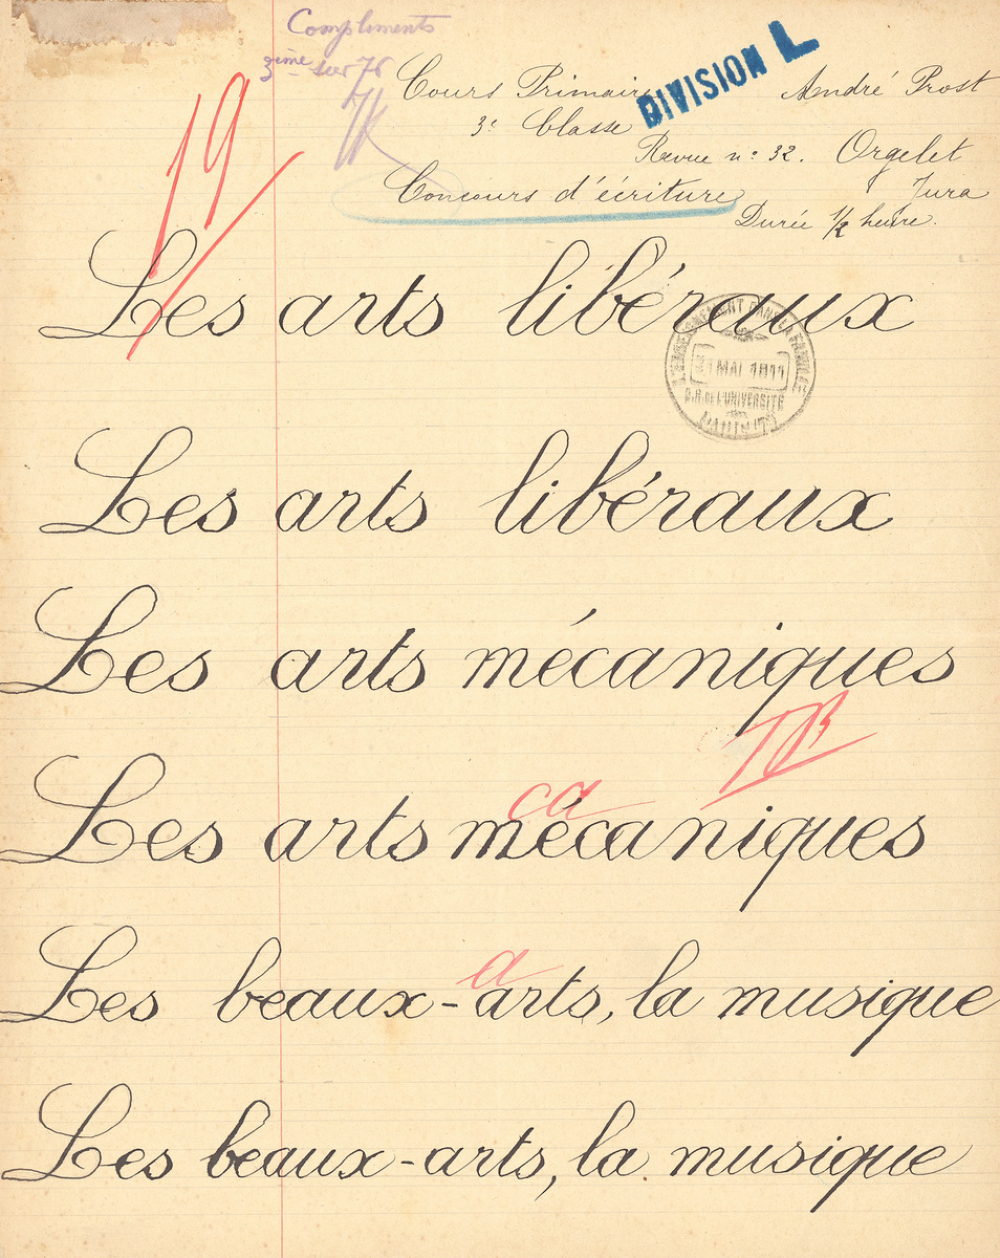 Compliments
3ième sur 76
19
DIVISION L
Cours Primaire
André Prost
3e Classe
Revue n: 32. Orgelet
Jura
Concours d'écriture
Durée 1/2 heure.
Les arts libéraux
L'ENSEIGNEMENT DANS LA FAMILLE
MAI 1911
D.H. DE L'UNIVERSITÉ
Les arts libéraux
Les arts mécaniques
TB
ca
Les arts mécaniques
a
Les beaux-arts, la musique
Les beaux-arts, la musique